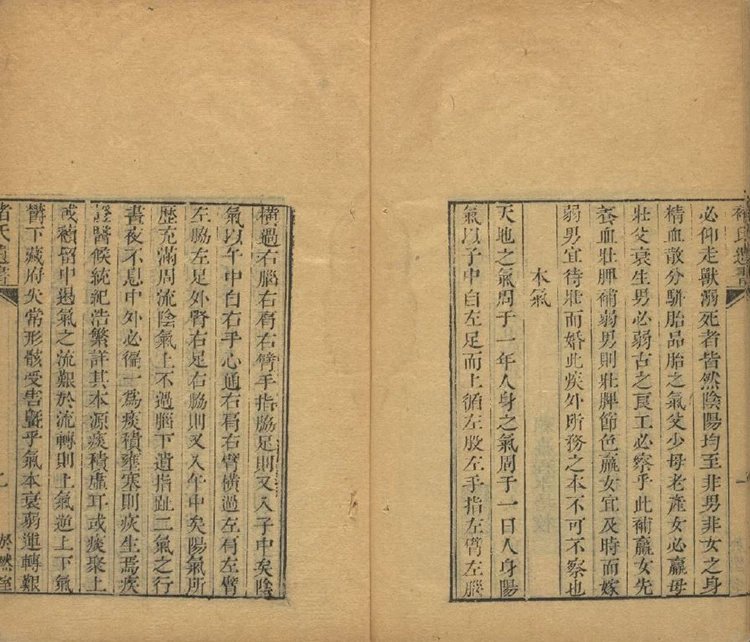 褚氏遺書
必仰走獸溺死者皆然陰陽均至非男非女之身
精血散分駢胎品胎之氣父少母老產女必羸母
壯父衰生男必弱古之良工必察乎此補羸女先
養血壯脾補弱男則壯脾節色羸女宜及時而嫁
弱男宜待壯而婚此疾外所務之本不可不察也
本氣
天地之氣周于一年人身之氣周于一日人身陽
氣以子中自左足而上循左股左手指左臂左腦
橫過右腦右肩右臂手指脇足則又入子中矣陰
氣以午中自右手心通右肩右臂橫過左肩左臂
左脇左足外腎右足右脇則又入午中矣陽氣所
歷充滿周流陰氣上不過腦下遺指趾二氣之行
晝夜不息中外必徧一為痰積雍塞則疾生焉疾
證醫候統紀浩繁詳其本源痰積虛耳或痰聚上
或積留中遏氣之流艱於流轉則上氣逆上下氣
鬱下藏府失常形骸受害暨乎氣本衰弱運轉艱
褚氏遺書
於然室